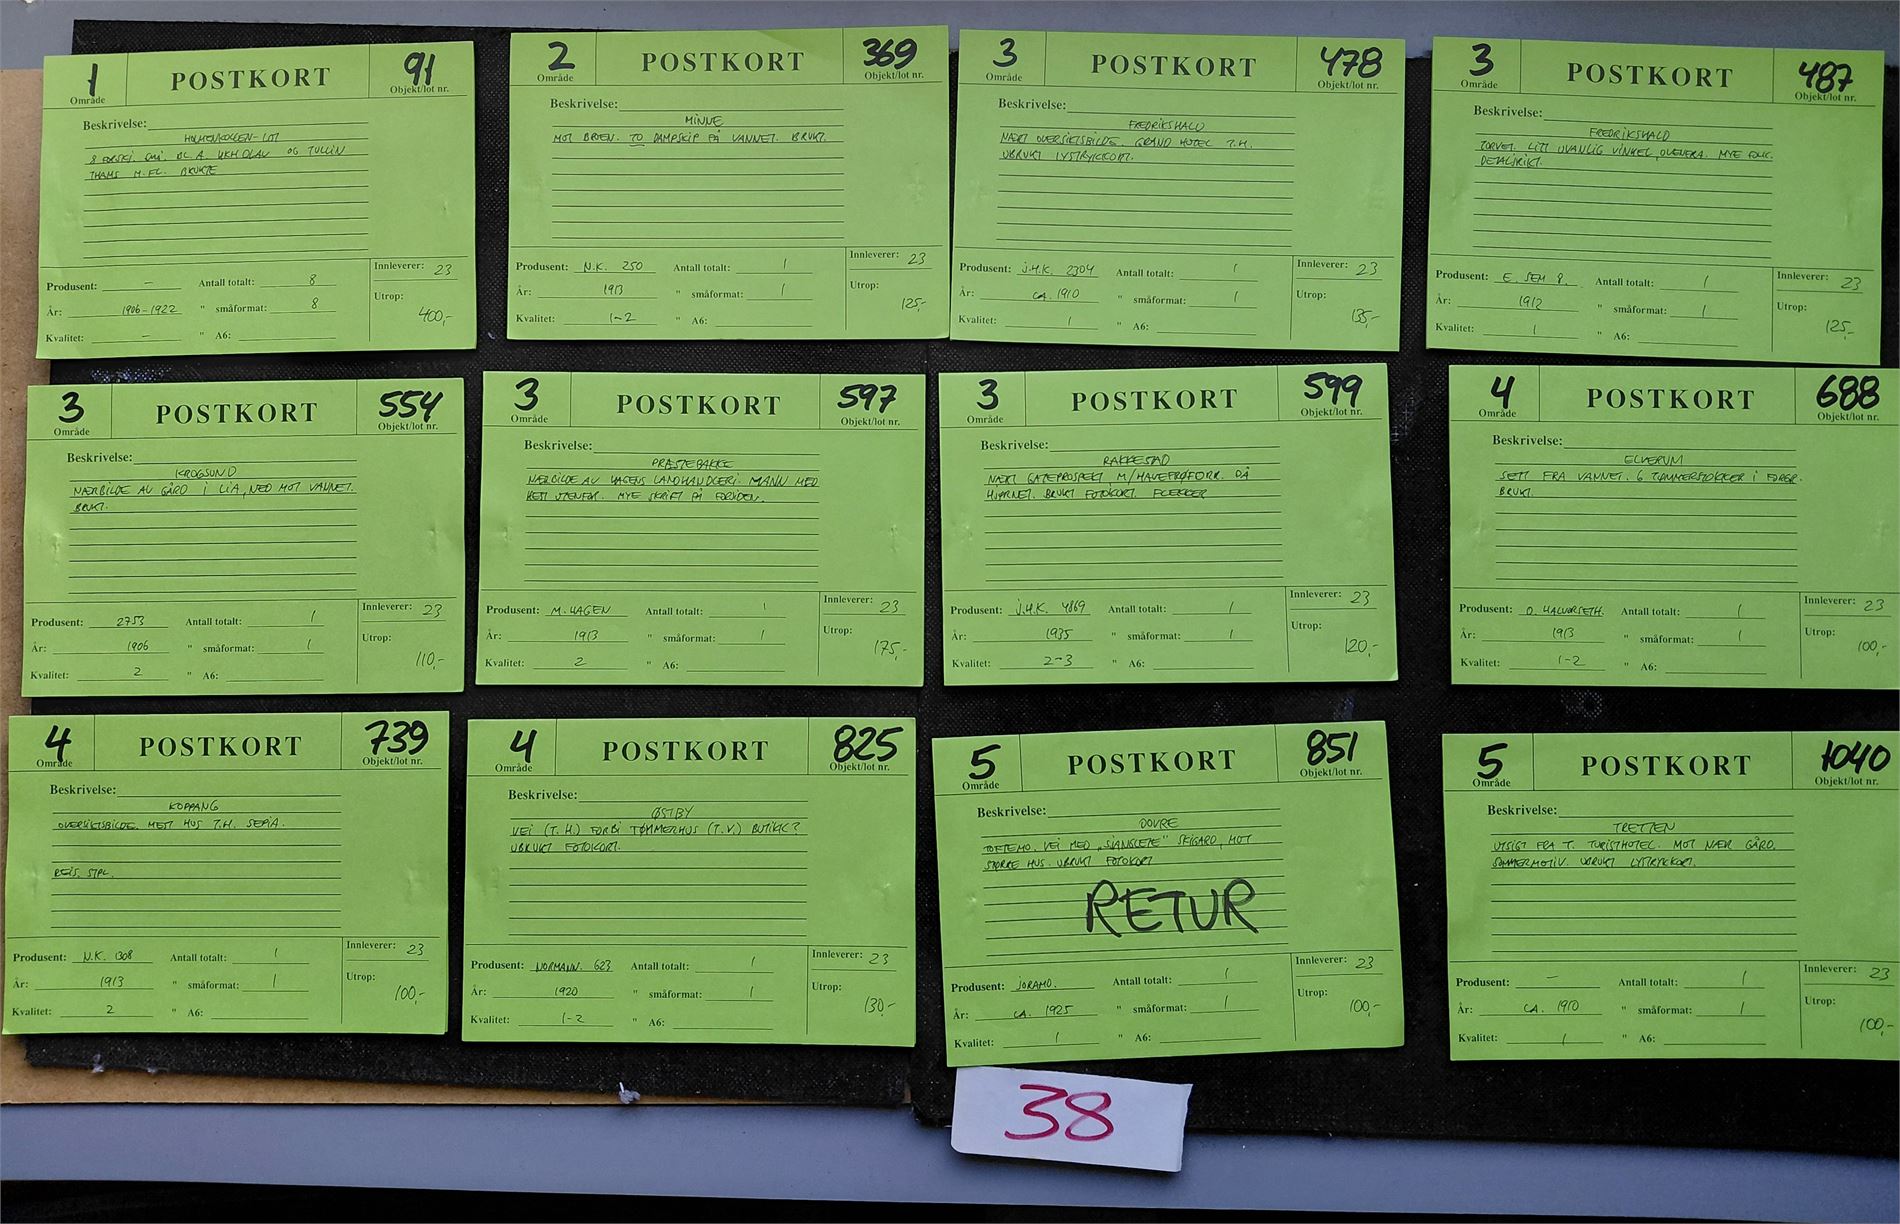 1
Område
POSTKORT
91
Objekt/lot nr.
Beskrivelse:
HOLMENKOLLEN-LOT
8 FORSKJ. BL.A. OLAV OG TULLIN
THAMS M.FL. BRUKTE
Innleverer: 23
Produsent: -
Antall totalt: 8
Utrop:
400,-
År: 1906-1922
" småformat: 8
Kvalitet: -
" A6:
2
Område
POSTKORT
369
Objekt/lot nr.
Beskrivelse:
MINNE
MOT BROEN. TO DAMPSKIP PÅ VANNET. BRUKT.
Innleverer: 23
Produsent: N.K. 250
Antall totalt: 1
Utrop:
125,-
År: 1913
" småformat: 1
Kvalitet: 1-2
" A6:
3
Område
POSTKORT
478
Objekt/lot nr.
Beskrivelse:
FREDRIKSHALD
NÆRT OVERSIKTSBILDE. GRAND HOTEL T.H.
UBRUKT LYSTRYKKORT.
Innleverer: 23
Produsent: J.H.K. 2304
Antall totalt: 1
Utrop:
135,-
År: CA. 1910
" småformat: 1
Kvalitet: 1
" A6:
3
Område
POSTKORT
487
Objekt/lot nr.
Beskrivelse:
FREDRIKSHALD
TORVET. LITT UVANLIG VINKEL, OVENFRA. MYE FOLK.
DETALJRIKT.
Innleverer: 23
Produsent: E. SEM 8.
Antall totalt: 1
Utrop:
125,-
År: 1912
" småformat: 1
Kvalitet: 1
" A6:
3
Område
POSTKORT
554
Objekt/lot nr.
Beskrivelse:
KROGSUND
NÆRBILDE AV GÅRD I LIA, NED MOT VANNET.
BRUKT.
Innleverer: 23
Produsent: 2753
Antall totalt: 1
Utrop:
110,-
År: 1906
" småformat: 1
Kvalitet: 2
" A6:
3
Område
POSTKORT
597
Objekt/lot nr.
Beskrivelse:
PRÆSTEBAKKE
NÆRBILDE AV HAGENS LANDHANDLERI. MANN MED
HEST UTENFOR. MYE SKRIFT PÅ FORSIDEN.
Innleverer: 23
Produsent: M. HAGEN
Antall totalt: 1
Utrop:
175,-
År: 1913
" småformat: 1
Kvalitet: 2
" A6:
3
Område
POSTKORT
599
Objekt/lot nr.
Beskrivelse:
RAKKESTAD
NÆRT GATEPROSPEKT, M/HAVEFRØFORR. PÅ
HJØRNET. BRUKT FOTOKORT. FLEKKER
Innleverer: 23
Produsent: J.H.K. 4869
Antall totalt: 1
Utrop:
120,-
År: 1935
" småformat: 1
Kvalitet: 2-3
" A6:
4
Område
POSTKORT
688
Objekt/lot nr.
Beskrivelse:
ELVERUM
SETT FRA VANNET. 6 TØMMERSTOKKER I FORGR.
BRUKT.
Innleverer: 23
Produsent: O. HALVORSETH.
Antall totalt: 1
Utrop:
100,-
År: 1913
" småformat: 1
Kvalitet: 1-2
" A6:
4
Område
POSTKORT
739
Objekt/lot nr.
Beskrivelse:
KOPPANG
OVERSIKTSBILDE. MEST HUS T.H. SEPIA.
REIS. STPL.
Innleverer: 23
Produsent: N.K. 1308
Antall totalt: 1
Utrop:
100,-
År: 1913
" småformat: 1
Kvalitet: 2
" A6:
4
Område
POSTKORT
825
Objekt/lot nr.
Beskrivelse:
ØSTBY
VEI (T.H.) FORBI TØMMERHUS (T.V.) BUTIKK?
UBRUKT FOTOKORT.
Innleverer: 23
Produsent: NORMANN. 623
Antall totalt: 1
Utrop:
130,-
År: 1920
" småformat: 1
Kvalitet: 1-2
" A6:
5
Område
POSTKORT
851
Objekt/lot nr.
Beskrivelse:
DOVRE
TOFTEMO. VEI MED „SVINGLETE" SKIGARD, MOT
STØRRE HUS. UBRUKT FOTOKORT
RETUR
Innleverer: 23
Produsent: JORAMO.
Antall totalt: 1
Utrop:
100,-
År: CA. 1925
" småformat: 1
Kvalitet: 1
" A6:
5
Område
POSTKORT
1040
Objekt/lot nr.
Beskrivelse:
TRETTEN
UTSIGT FRA T. TURISTHOTEL. MOT NÆR GÅRD.
SOMMERMOTIV. UBRUKT LYSTRYKKORT.
Innleverer: 23
Produsent: -
Antall totalt: 1
Utrop:
100,-
År: CA. 1910
" småformat: 1
Kvalitet: 1
" A6:
38